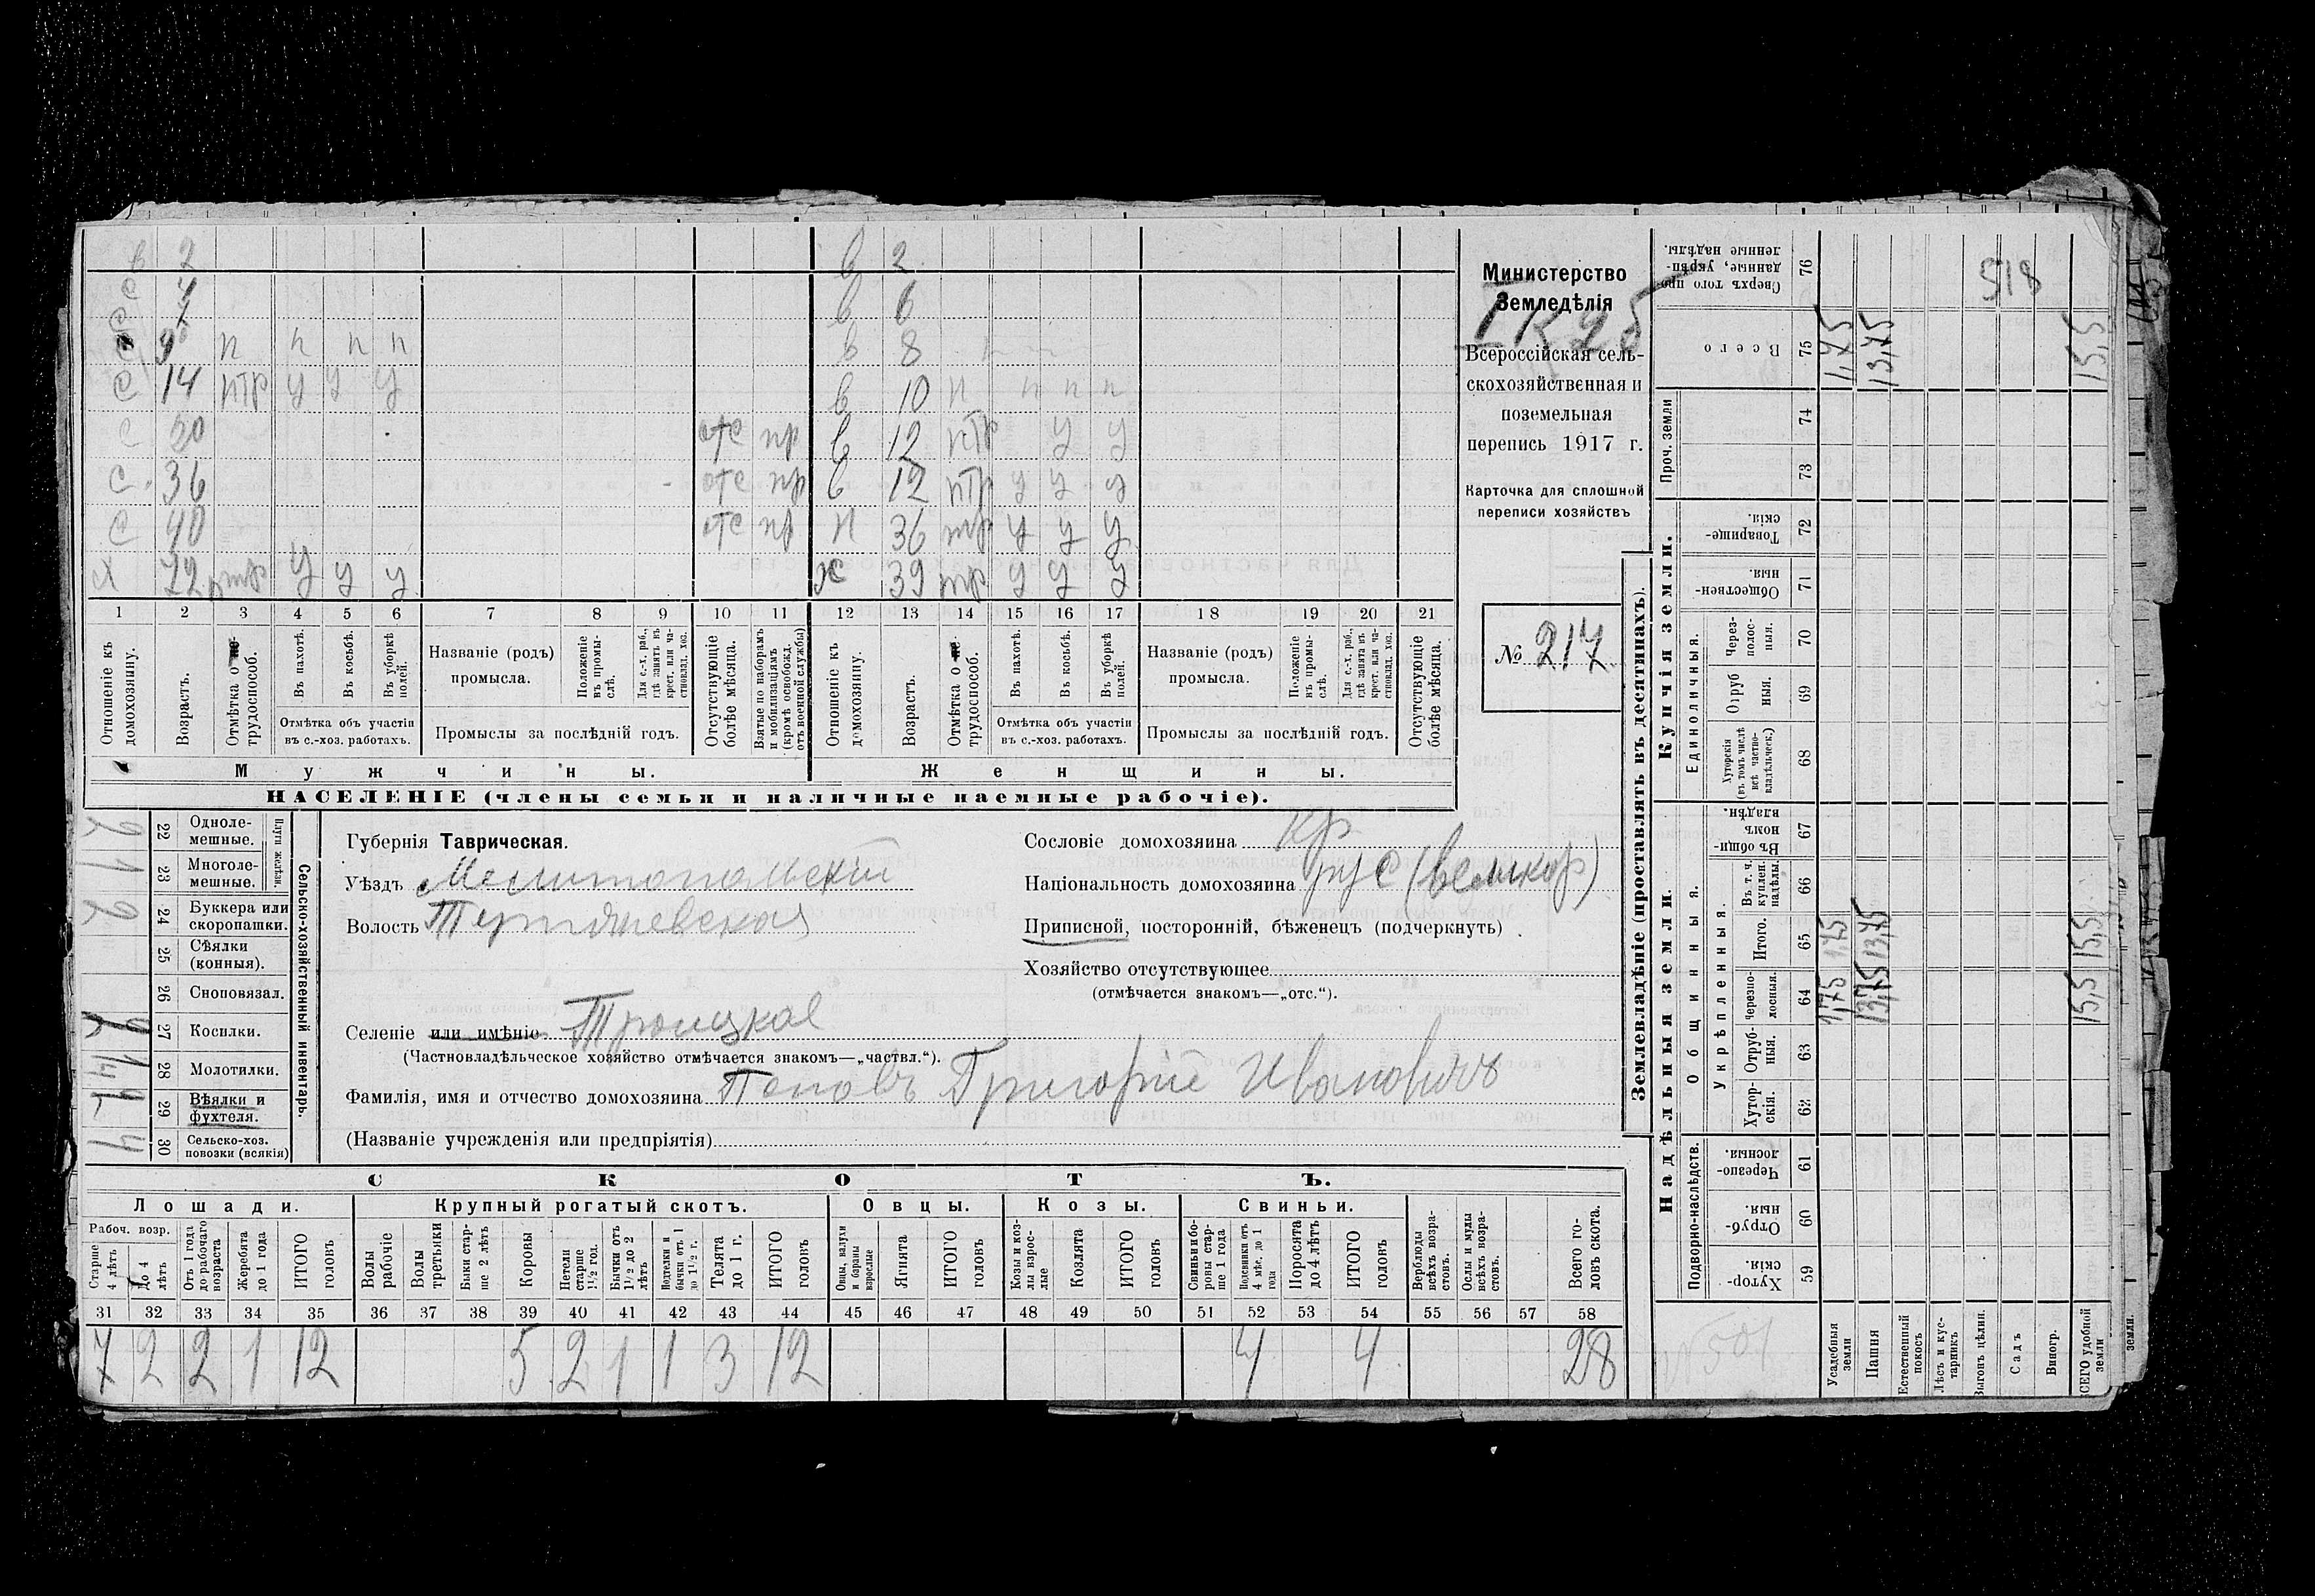 в 2 в 2
с 4 в 6
с 7 в 8
с 9 п п п п в 10 п п п п
с 14 птр у у у в 12 птр у у
с 20 отс пр в 12 птр у у у
с. 36 отс пр п 36 тр у у у
с 40 отс пр ж 39 тр у у у
х 72 птр у у у
1 2 3 4 5 6 7 8 9 10 11 12 13 14 15 16 17 18 19 20 21
Отношеніе къ домохозяину.
Возрастъ.
Отмѣтка о не трудоспособ.
Въ пахотѣ.
Въ косьбѣ.
Въ уборкѣ полей.
Отмѣтка объ участіи въ с.-хоз. работахъ.
Названіе (родъ) промысла.
Положеніе въ промы-слѣ.
Для с.-х. раб., гдѣ занятъ въ крест. или ча-стновлад. хоз.
Промыслы за послѣдній годъ.
Отсутствующіе болѣе мѣсяца.
Взятые по наборамъ и мобилизаціямъ (кромѣ освобожд. отъ военной службы)
Отношеніе къ домохозяину.
Возрастъ.
Отмѣтка о не трудоспособ.
Въ пахотѣ.
Въ косьбѣ.
Въ уборкѣ полей.
Отмѣтка объ участіи въ с.-хоз. работахъ.
Названіе (родъ) промысла.
Положеніе въ промы-слѣ.
Для с.-х. раб., гдѣ занятъ въ крест. или ча-стновлад. хоз.
Промыслы за послѣдній годъ.
Отсутствующіе болѣе мѣсяца.
Мужчины. Женщины.
НАСЕЛЕНІЕ (члены семьи и наличные наемные рабочіе).
Министерство
Земледѣлія
Всероссійская сель-
скохозяйственная и
поземельная
перепись 1917 г.
Карточка для сплошной
переписи хозяйствъ
№ 217
Сельско-хозяйственный инвентарь.
Плуги желѣзн.
22 Одноле-мешные. 2
23 Многоле-мешные. 1
24 Буккера или скоропашки. 2
25 Сѣялки (конныя).
26 Сноповязал.
27 Косилки.
28 Молотилки.
29 Вѣялки и фухтеля.
30 Сельско-хоз. повозки (всякія) 4
Губернія Таврическая.
Уѣздъ Мелитопольскій
Волость
Сословіе домохозяина кр
Національность домохозяина рус (великор)
Приписной, посторонній, бѣженецъ (подчеркнуть)
Хозяйство отсутствующее
(отмѣчается знакомъ—„отс.“).
Селеніе или имѣніе Троицкое
(Частновладѣльческое хозяйство отмѣчается знакомъ—„частвл.“).
Фамилія, имя и отчество домохозяина Поповъ Григорій Ивановичъ
(Названіе учрежденія или предпріятія)
СКОТЪ.
Лошади. Крупный рогатый скотъ. Овцы. Козы. Свиньи.
Рабоч. возр.
Старше 4 лѣтъ
До 4 лѣтъ
Отъ 1 года до рабочаго возраста
Жеребята до 1 года
ИТОГО головъ
Волы рабочіе
Волы третьяки
Быки стар-ше 2 лѣтъ
Коровы
Нетели старше 1½ год.
Бычки отъ 1½ до 2 лѣтъ
Подтелки и бычки отъ 1 до 1½ г.
Телята до 1 г.
ИТОГО головъ
Овцы, валухи и бараны взрослые
Ягнята
ИТОГО головъ
Козы и коз-лы взрос-лые
Козлята
ИТОГО головъ
Свиньи и бо-ровы стар-ше 1 года
Подсвинки отъ 4 мѣс. до 1 года
Поросята до 4 лѣтъ
ИТОГО головъ
Верблюды всѣхъ возра-стовъ.
Ослы и мулы всѣхъ возра-стовъ.
Всего го-ловъ скота.
31 32 33 34 35 36 37 38 39 40 41 42 43 44 45 46 47 48 49 50 51 52 53 54 55 56 57 58
7 2 2 1 12 5 2 1 1 3 12 4 4 28
Землевладѣніе (проставлять въ десятинахъ).
Купчія земли.
Проч. земли
Единоличныя.
Надѣльныя земли.
Общинныя.
Укрѣпленныя.
Подворно-наслѣдств.
Сверхъ того про-данные, укрѣп-ленные надѣлы. 76
Всего 75
74
73
Товарище-скія. 72
Обществен-ныя. 71
Через-полос-ныя. 70
Отруб ныя. 69
Хуторскія (въ томъ числѣ всѣ частно-владѣльческ.) 68
Въ общи-номъ владѣн. 67
Въ т. ч. куплен. надѣлы. 66
Итого. 65
Черезпо-лосныя. 64
Отруб-ныя. 63
Хутор-скія. 62
Черезпо-лосныя. 61
Отруб-ныя. 60
Хутор-скія. 59
Усадебныя земли 1,75 1,75 1,75
Пашня 13,75 13,75 13,75
Естественный покосъ
Лѣсъ и кус-тарникъ
Выгонъ цѣлин.
Садъ
Виногр.
ВСЕГО удобной земли 15,5 15,5 15,5
земли.
518